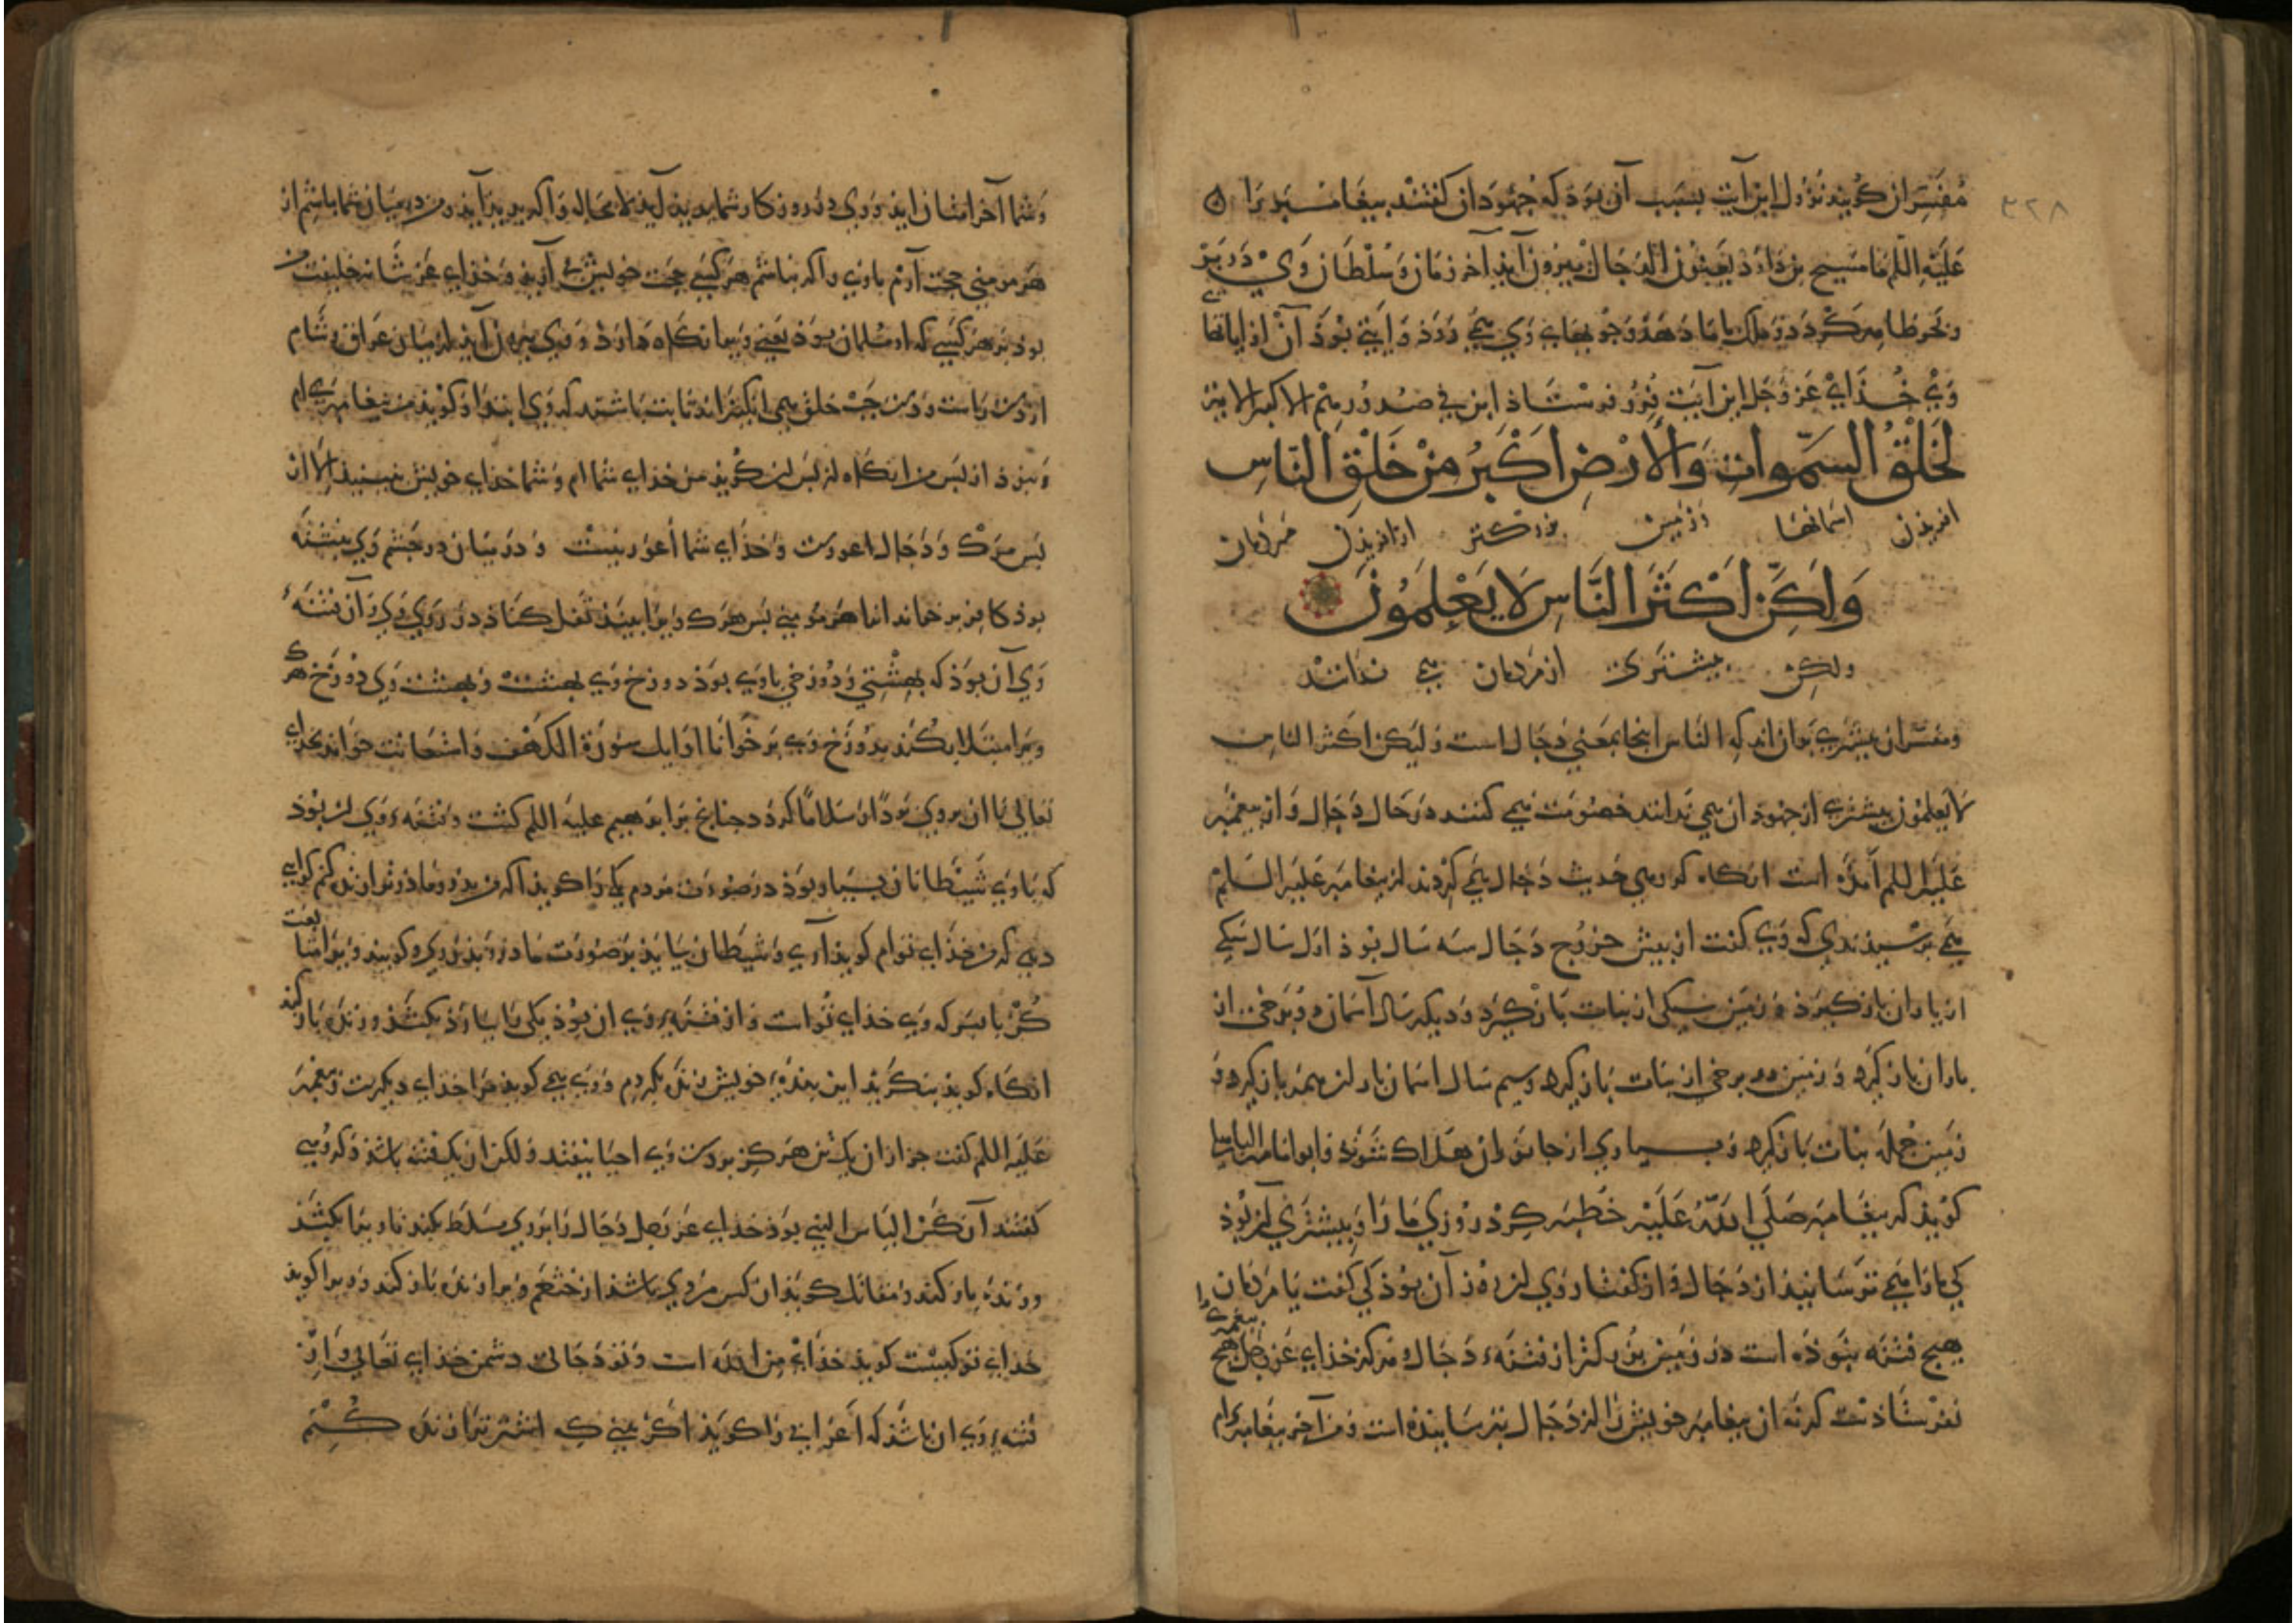 ۳۲۸
مفسران گویند نزول این آیت بسبب آن بوذ که جهوذان گفتند بیغامبر را
علیه اللم ما مسیح بن داود یعنون الدجال بیرون آیذ آخر زمان و سلطان وی در بر
و بحر ظاهر گردد و ملک با ما دهد و جویهاء وی می روذ و ایتی بوذ آن از ایاتهاء
وی خذای عز و جل این آیت فرو فرستاذ ان فی صدورهم الا کبر الایة
لَخَلْقُ السَّمواتِ وَالْأَرْضِ اَكْبَرُ مِنْ خَلْقِ النَّاسِ
افریذن اسمانها و زمین بزرگتر از افریذن مردمان
وَلَكِنَّ اَكْثَرَ النَّاسِ لَا يَعْلَمُونَ
ولکن بیشتری از مردمان می ندانند
و مفسران بیشتری بران اند که الناس اینجا بمعنی دجال است و لیکن اکثر الناس
لا یعلمون بیشتری از جهوذان می ندانند خصومت می کنند در حال دجال و از بیغمبر
علیه اللم آمده است انگاه که حدیث دجال می کردند از بیغامبر علیه السلم
می برسیذندی که وی گفت از بیش خروج دجال سه سال بوذ اول سال سیکی
از باران بازگیرذ و زمین سیکی از نبات بازگیرد و دیگر سال آسمان دو برخی از
باران بازگیرد و زمین دو برخی از نبات بازگیرد و سیم سال اسمان باران همه بازگیرد و
زمین جمله نبات بازگیرد و بسیاری از جانوران هلاک شوند و ابو امامه الباهلی
گویذ که بیغامبر صلی الله علیه خطبه کرد روزی ما را و بیشتری آن بوذ
کی ما را می ترسانیذ از دجال و از گفتار وی آن بوذ کی گفت یا مردمان
هیچ فتنه نبوذه است در زمین بزرگتر از فتنهء دجال و هرگز خذای عز و جل هیچ بیغمبری را
نفرستاذست که نه ان بیغامبر خویش را از دجال بترسانیذه است و من آخر بیغامبرانم
و شما آخر امتان ایذ و وی در روزگار شما بدیذ آیذ لا محاله و اگر بدیذ آیذ و من در میان شما باشم از
هر مومنی حجت آرم با وی و اگر نباشم هر کسی حجت خویش آریذ و خذای عز شانه خلیفت من
بوذ بر هر کسی که او مسلمان بوذ و وی بیرون آیذ از میان عراق و شام
و نبوذ از بس من انگاه از بس ان گویذ من خذای شما ام و شما خذای خویش نبینیذ الا از
بس مرگ و دجال اعورست و خذای شما اعور نیست و در میان دو چشم وی نبشته
بوذ کافر بر خواند انرا هر مومنی بس هرک ویرا بینذ تفل کناذ در روی وی و از فتنهء
وی آن بوذ که بهشتی و دوزخی با وی بوذ دوزخ وی بهشت و بهشت وی دوزخ هرک
ویرا مبتلا بکنند بدوزخ وی بر خواناذ اوایل سورة الکهف و استعانت خواند بخذای
تعالی تا ان بر وی بردا و سلاما گردد چنانچ بر ابرهیم علیه اللم گشت و فتنهء وی ان بوذ
که با وی شیطانان بسیار بوذ در صورت مردم یکی را گویذ اگر من بدر و مادر تو را زنده کنم گواهی
دهی که من خذای توام گویذ آری و شیطان بیایذ بر صورت مادر و بذر وی گویند ویرا متابعت
کن یا بسر که وی خذای توات و از فتنهء وی ان بوذ یکی را بیارذ بکشذ و زنده باز کند
انگاه گویذ بنگریذ این بندهء خویش زنده بکردم و وی می گویذ مرا خذای دیگرست و بیغمبر
علیه اللم گفت جز از ان یک تن هرگز بر دست وی احیا نیفتد و لکن ان یک فتنه باشد و گروهی
گفتند آن کس الیاس النبی بوذ خذای عز و جل دجال را بر وی مسلط بکند تا ویرا بکشذ
و زنده باز کند و مقاتل گویذ ان کس مردی باشذ از خثعم ویرا زنده باز کند و ویرا گویذ
خذای تو کیست گویذ خذاء من الله است و تو دجالی دشمن خذای تعالی و از
فتنهء وی ان باشذ که اعرابی را گویذ اگر من اشتر ترا زنده کنم